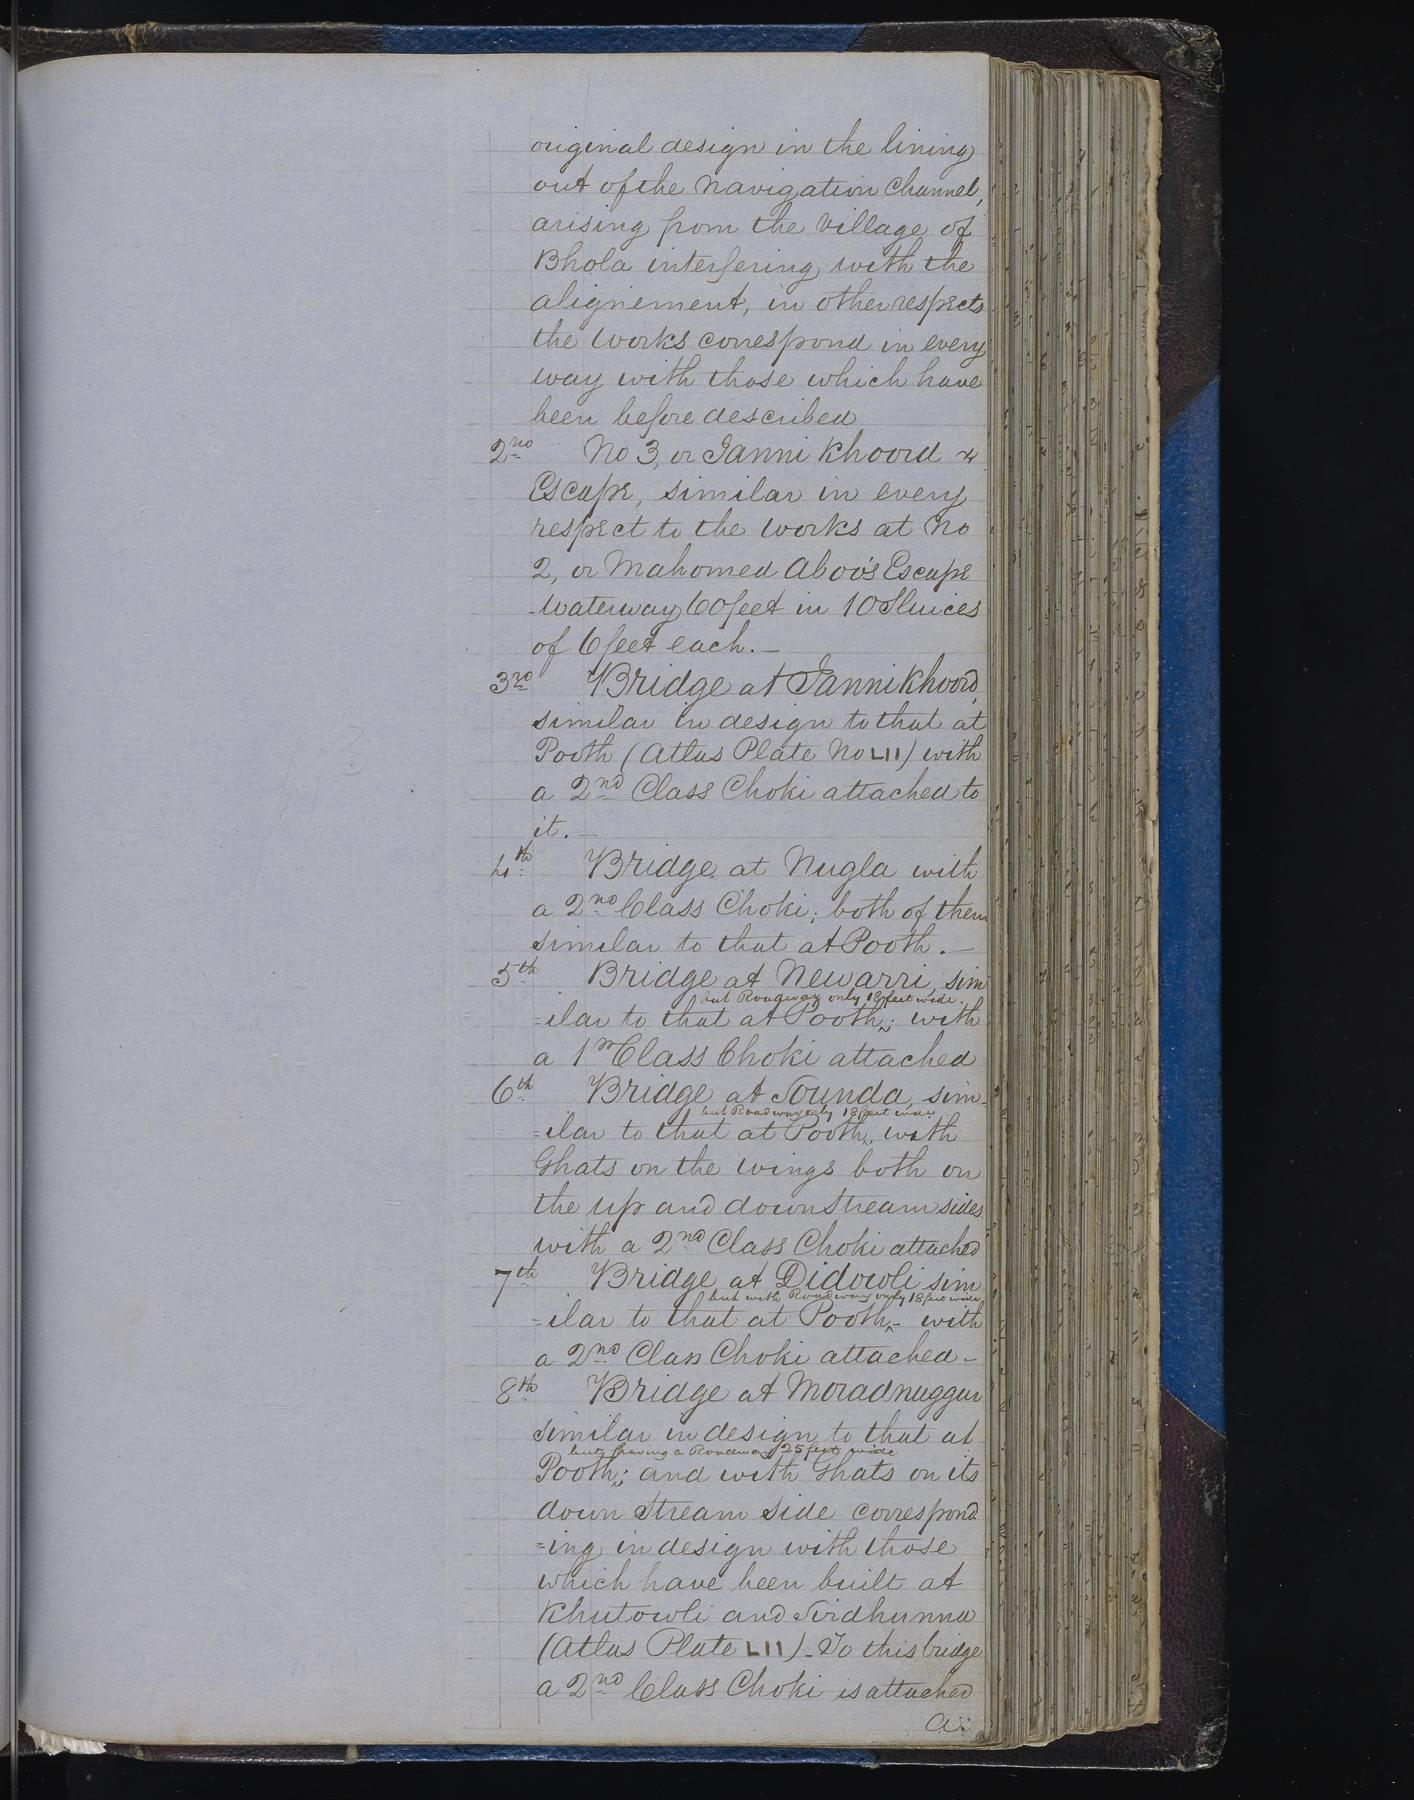 original design in the lining
out of the Navigation Channel,
arising from the Village of
Bhola interfering with the
alignement, in other respects
the Works correspond in every
way with those which have
been before described
2nd No 3, or Janni Khoord &
Escape, similar in every
respect to the Works at No
2, or Mahomed Aboo's Escape
-Waterway 60 feet in 10 Sluices
of 6 feet each.-
3rd Bridge at Janni Khoord,
similar in design to that at
Pooth (Atlas Plate No LII) with
a 2nd Class Choki attached to
it.-
4th Bridge at Nugla with
a 2nd Class Choki; both of them
similar to that at Pooth.-
5th Bridge at Newarri, sim
but Roadway only 18 feet wide.
=ilar to that at Pooth^; with
a 1st Class Choki attached
6th Bridge at Sounda, sim-
but Roadway only 18 feet wide
=ilar to that at Pooth^, with
Ghats on the wings both on
the up and down Stream sides,
with a 2nd Class Choki attached
7th Bridge at Didowli sim
but with Roadway only 18 feet wide,
=ilar to that at Pooth^- with
a 2nd Class Choki attached-
8th Bridge at Moradnuggur
similar in design to that at
but having a Roadway 25 feet wide
Pooth^; and with Ghats on its
down Stream Side correspond
=ing in design with those
which have been built at
Khutowli and Sirdhunna
(Atlas Plate LII)- To this bridge
a 2nd Class Choki is attached
a: